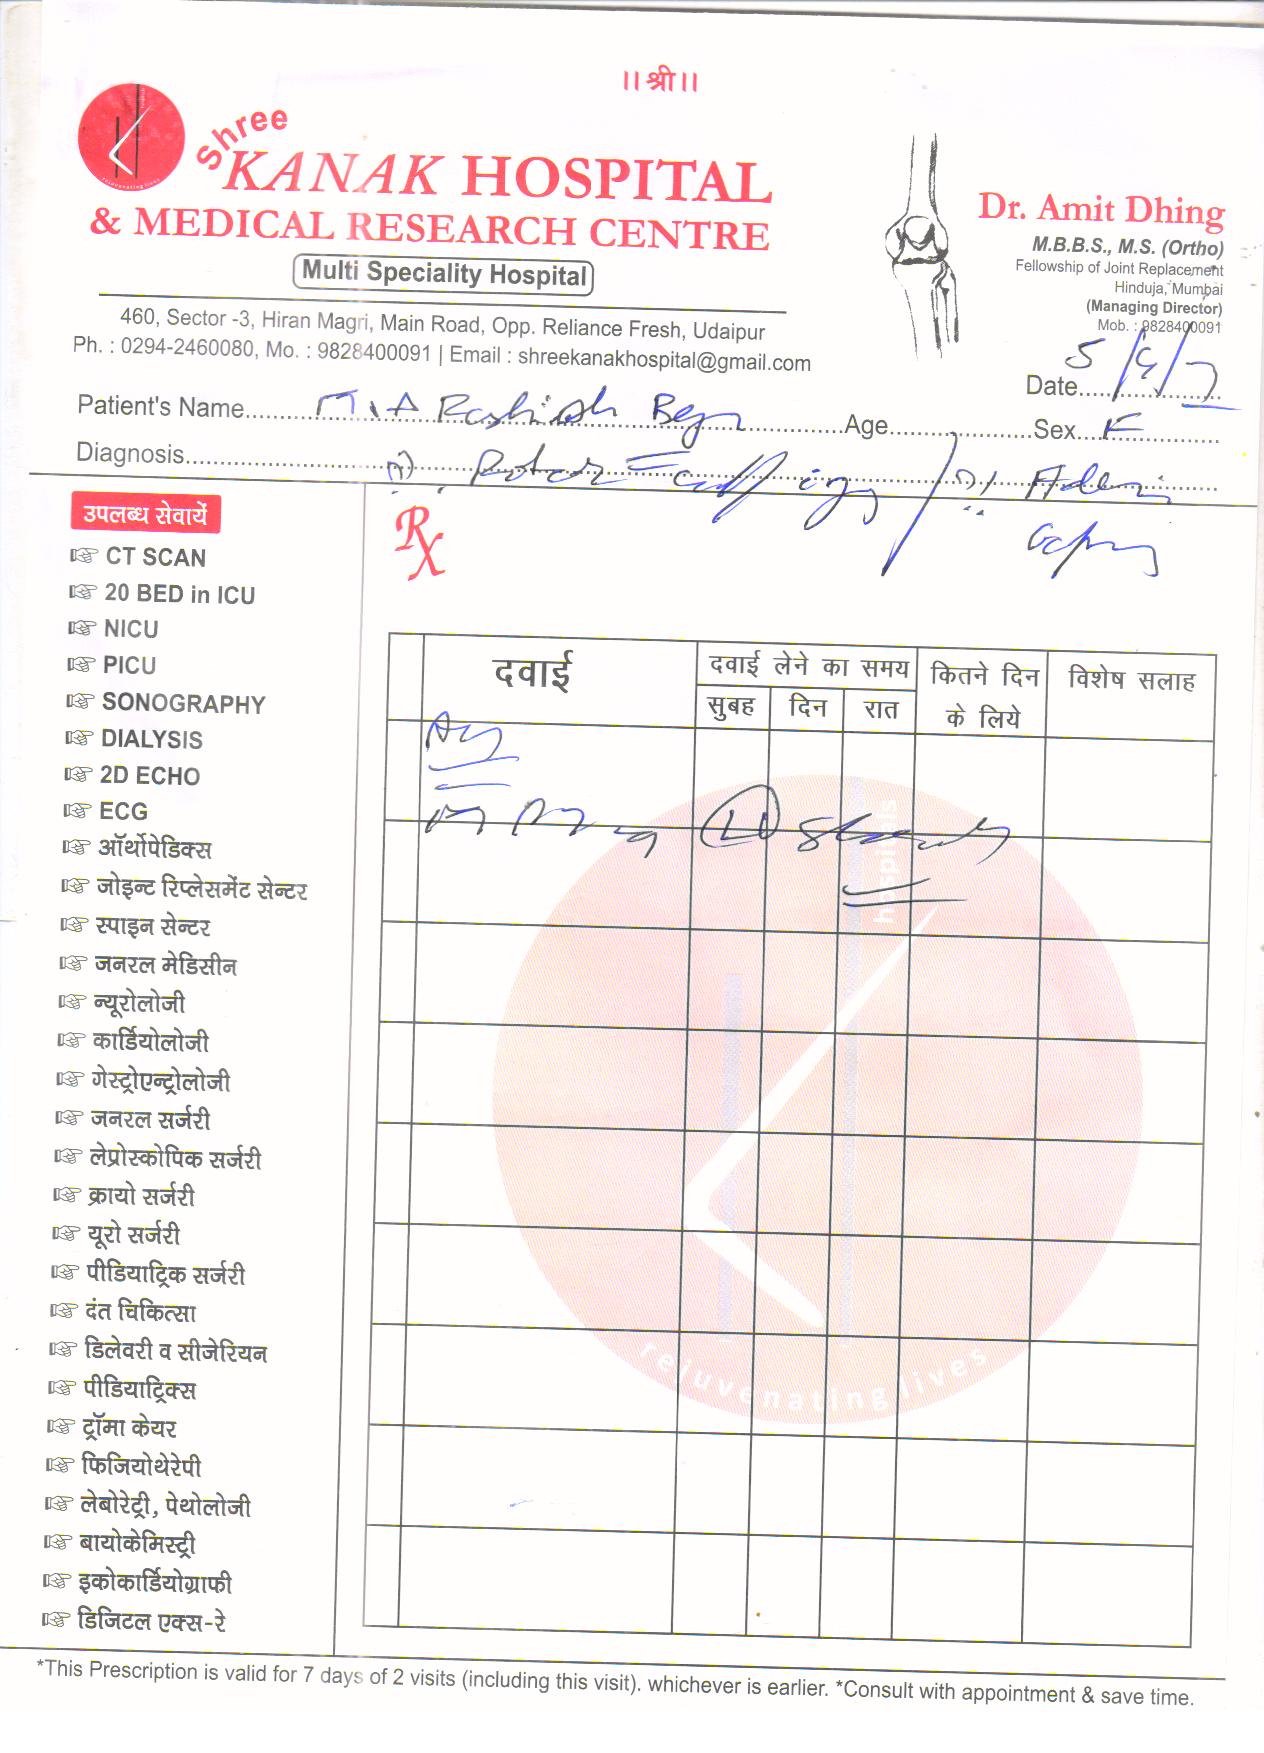 ।।श्री।।
Shree
KANAK HOSPITAL
& MEDICAL RESEARCH CENTRE
Multi Speciality Hospital
460, Sector -3, Hiran Magri, Main Road, Opp. Reliance Fresh, Udaipur
Ph. : 0294-2460080, Mo. : 9828400091 | Email : shreekanakhospital@gmail.com
Dr. Amit Dhing
M.B.B.S., M.S. (Ortho)
Fellowship of Joint Replacement
Hinduja, Mumbai
(Managing Director)
Mob. : 9828400091
Date..... 5/4/7
Patient's Name.......... Age.......... Sex... F
Diagnosis.......... Rotor cuff injury
उपलब्ध सेवायें
CT SCAN
20 BED in ICU
NICU
PICU
SONOGRAPHY
DIALYSIS
2D ECHO
ECG
ऑर्थोपेडिक्स
जोइन्ट रिप्लेसमेंट सेन्टर
स्पाइन सेन्टर
जनरल मेडिसीन
न्यूरोलोजी
कार्डियोलोजी
गेस्ट्रोएन्ट्रोलोजी
जनरल सर्जरी
लेप्रोस्कोपिक सर्जरी
क्रायो सर्जरी
यूरो सर्जरी
पीडियाट्रिक सर्जरी
दंत चिकित्सा
डिलेवरी व सीजेरियन
पीडियाट्रिक्स
ट्रॉमा केयर
फिजियोथेरेपी
लेबोरेट्री, पेथोलोजी
बायोकेमिस्ट्री
इकोकार्डियोग्राफी
डिजिटल एक्स-रे
Rx
दवाई
दवाई लेने का समय
सुबह दिन रात
कितने दिन
के लिये
विशेष सलाह
Adv
hospitals
rejuvenating lives
*This Prescription is valid for 7 days of 2 visits (including this visit). whichever is earlier. *Consult with appointment & save time.